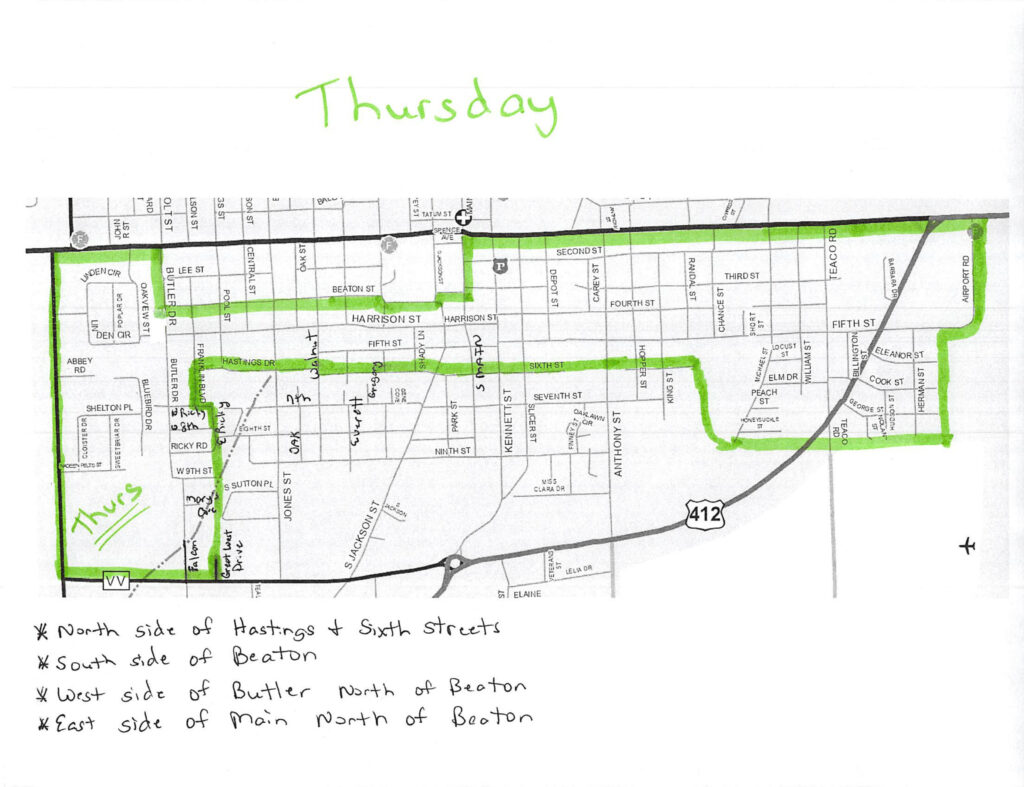 Thursday
TATUM ST
SPENCE AVE
JOHN R ST
SECOND ST
LINDEN CIR
BUTLER DR
LEE ST
CENTRAL ST
OAK ST
POOL ST
BEATON ST
OAKVIEW ST
POPLAR DR
LINDEN CIR
DEPOT ST
CAREY ST
RANDAL ST
THIRD ST
TEACO RD
BARBARA DR
AIRPORT RD
FOURTH ST
CHANCE ST
SHORT ST
HARRISON ST
HARRISON ST
FIFTH ST
FIFTH ST
SHADY LN
Walnut
S MAIN
ABBEY RD
BUTLER DR
FRANKLIN BLVD
HASTINGS DR
SIXTH ST
HOPPER ST
KING ST
MICHAEL ST
LOCUST ST
WILLIAM ST
BILLINGTON ST
ELEANOR ST
ELM DR
COOK ST
HERMAN ST
BLUEBIRD DR
SHELTON PL
E Ricky
E 8th
E Ricky
7th
Gregory
Everett
OAK
SEVENTH ST
PEACH ST
HONEYSUCKLE ST
GEORGE ST
HUDSON ST
TEACO RD
CLOISTER DR
SWEETBRIAR DR
EIGHTH ST
PARK ST
KENNETT ST
SLICER ST
OAKLAWN CIR
FINNEY ST
ANTHONY ST
RICKY RD
NINTH ST
W 9TH ST
S SUTTON PL
JONES ST
MISS CLARA DR
S JACKSON ST
S JACKSON
Thurs
412
Falcon
Great West Drive
VV
VETERANS ST
LELIA DR
ELAINE
* North side of Hastings & Sixth Streets
* South side of Beaton
* West side of Butler North of Beaton
* East side of Main North of Beaton